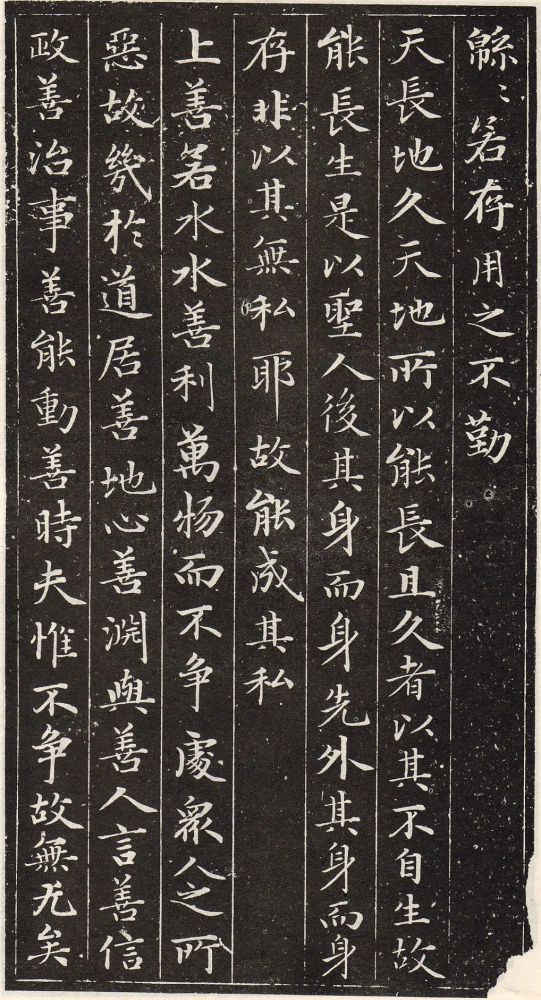 緜〻若存用之不勤
天長地久天地所以能長且久者以其不自生故
能長生是以聖人後其身而身先外其身而身
存非以其無私耶故能成其私
上善若水水善利萬物而不争處衆人之所
惡故幾於道居善地心善渊與善人言善信
政善治事善能動善時夫惟不争故無尤矣